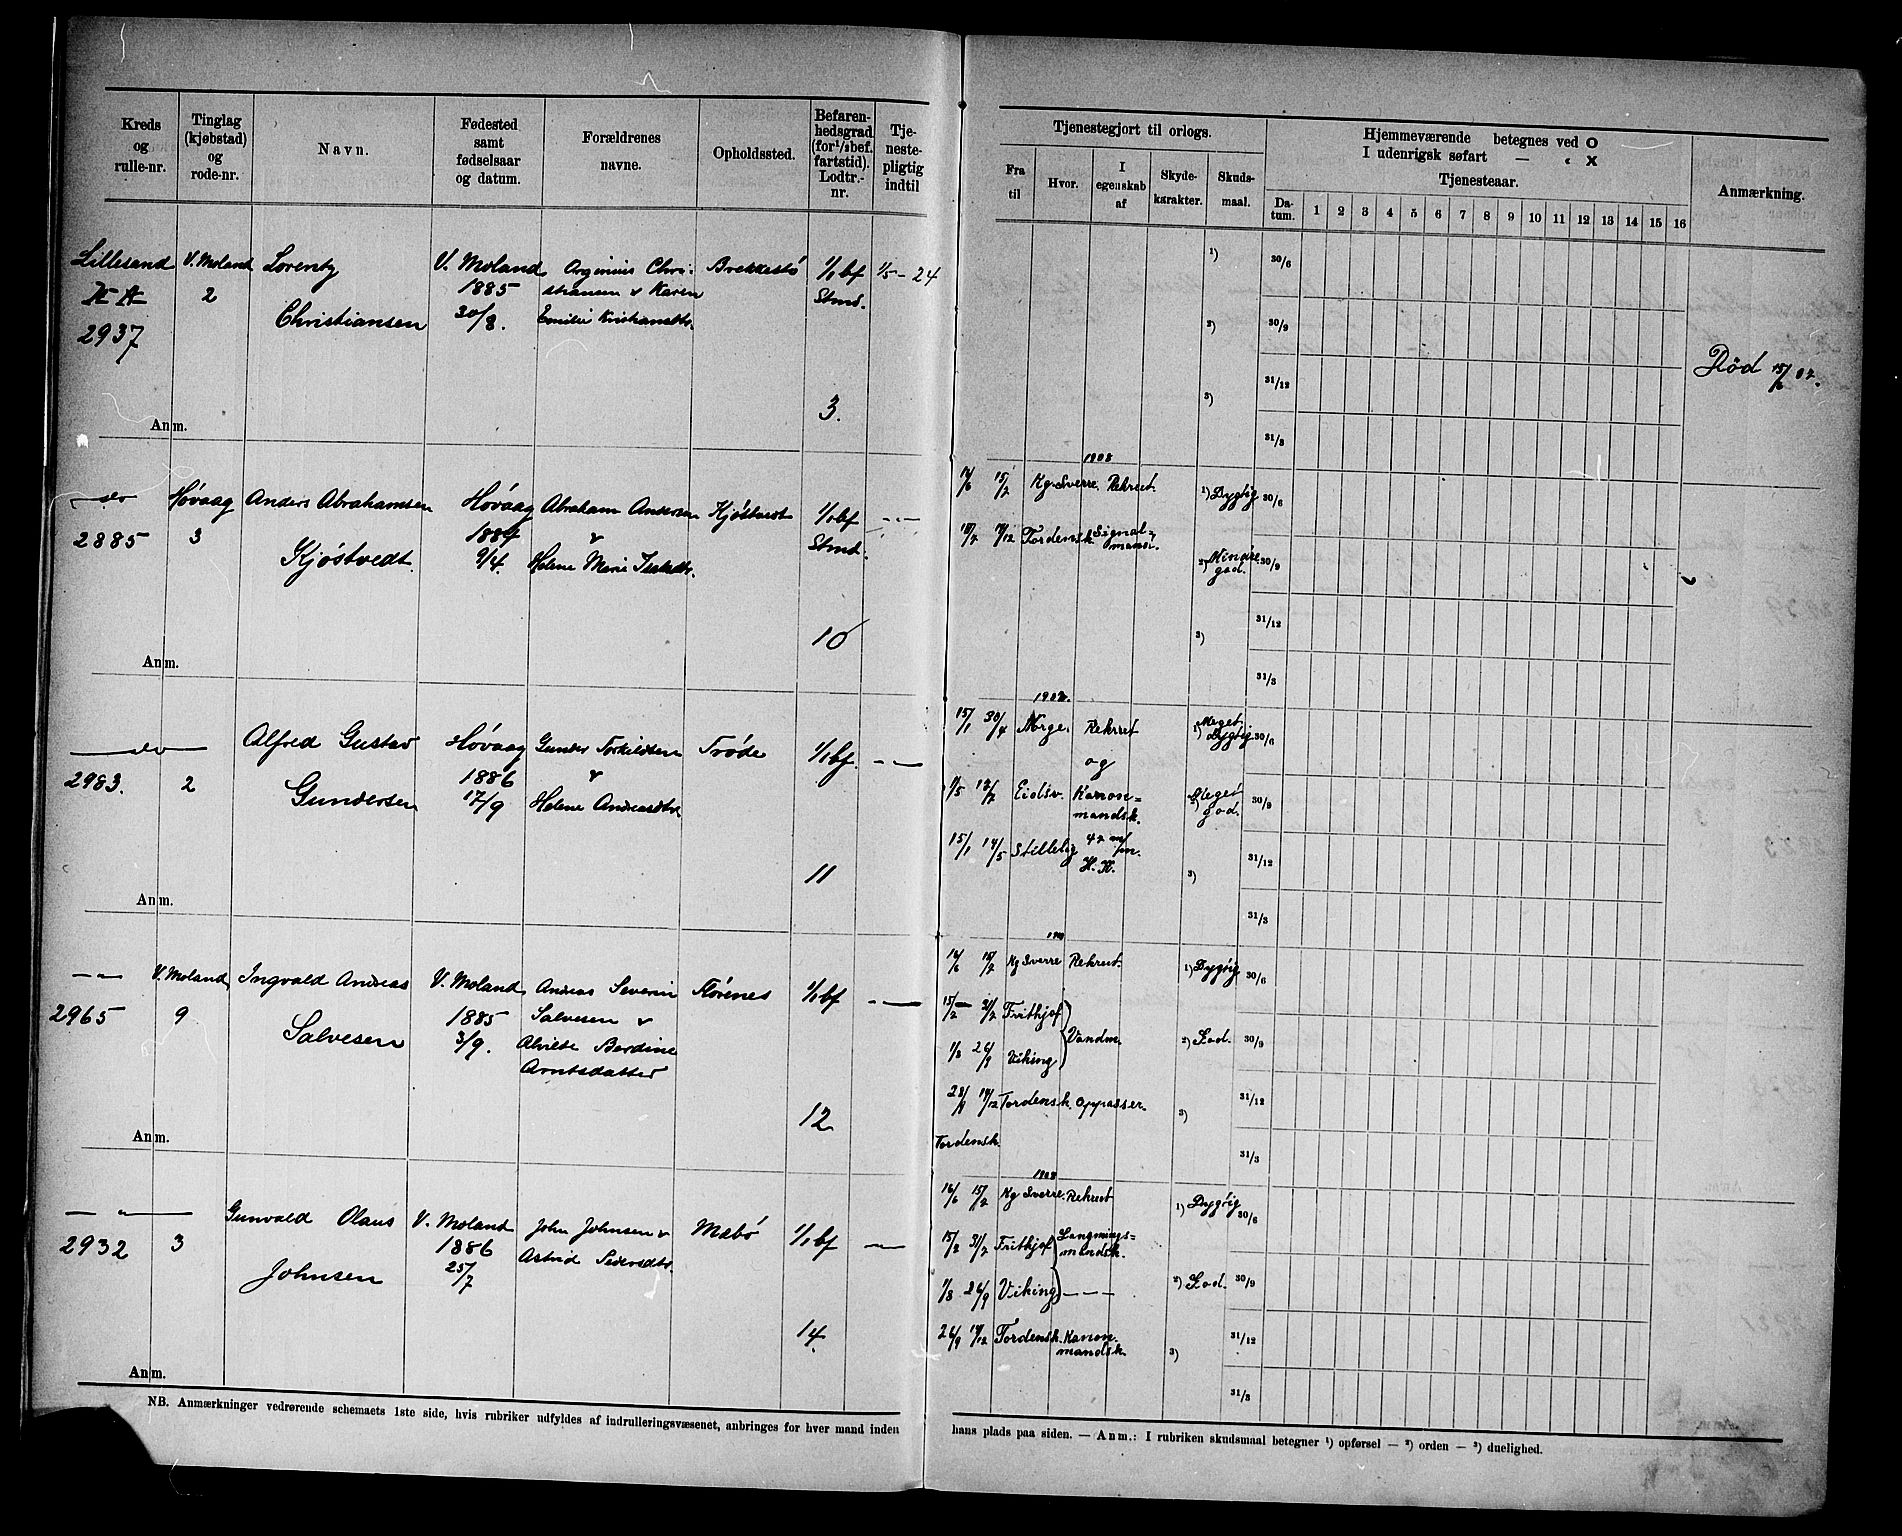 Kreds og rulle-nr.
Tinglag (kjøbstad) og rode-nr.
Navn.
Fødested samt fødselsaar og datum.
Forældrenes navne.
Opholdssted.
Befaren-hedsgrad (for 1/2bef. fartstid). Lodtr.-nr.
Tje-neste-pligtig indtil
Tjenestegjort til orlogs.
Fra til
Hvor.
I egenskab af
Skyde-karakter.
Skuds-maal.
Hjemmeværende betegnes ved O
I udenrigsk søfart — „ X
Tjenesteaar.
Da-tum.
1 2 3 4 5 6 7 8 9 10 11 12 13 14 15 16
Anmærkning.
Lillesand V. Moland Lorentz V. Moland Chri- Brekkestø 1/1 bf 1/5-24
2 1885 stiansen & Karen Stmd.
2937 Christiansen 30/8. Emilie
3.
Anm.
1) 30/6
2) 30/9
3) 31/12
31/3
Død 15/6 07.
— do Høvaag Anders Abrahamsen Høvaag Abraham Andersen Kjøstvedt 1/1 bf — " —
2885 3 1884 & Stmd.
Kjøstvedt 9/4. Helene Marie
10
Anm.
1908
16/6 15/7 Kg. Sverre. Rekrut. 1) Dygtig 30/6
18/7 17/12 Tordensk. Signal-mandsk. 2) Mindre god. 30/9
3) 31/12
31/3
— do — Alfred Gustav Høvaag Gunder Torkildsen Trøde 1/1 bf. — " —
2983. 2 1886 &
Gundersen 17/9 Helene Andreasdtr.
11
Anm.
15/1 30/4 Norge. Rekrut 1) Meget Dygtig. 30/6
og
1/5 Eidsv. Kanon-mandsk. 2) Meget god. 30/9
15/1 14/5 42 m/m. H. K. 3) 31/12
31/3
— " — V. Moland, Ingvald Andreas V. Moland Andreas Severin 1/1 bf — " —
2965 9 1885 Salvesen &
Salvesen 3/9. Berdine
Arntsdatter
12
Anm.
16/6 15/7 Kg Sverre Rekrut. 1) Dygtig 30/6
15/7 — 31/7 Frithjof
1/8 26/9 Viking Vandm. 2) God. 30/9
28/9 17/12 Tordensk. Oppasser. 3) 31/12
Tordensk. 31/3
— " — Gunvald Olaus V. Moland John Johnsen & Mæbø 1/1 bf — " —
2932 3 1886 Astrid
Johnsen 25/7
14.
Anm.
1908
16/6 15/7 Kg Sverre. Rekrut 1) Dygtig 30/6
15/7 31/7 Frithjof Langnings-mandsk.
1/8 26/9 Viking — " — 2) God. 30/9
26/9 17/12 Tordensk. Kanon-mandsk. 3) 31/12
31/3
NB. Anmærkninger vedrørende schemaets 1ste side, hvis rubriker udfyldes af indrulleringsvæsenet, anbringes for hver mand inden
hans plads paa siden. — Anm.: I rubriken skudsmaal betegner 1) opførsel — 2) orden — 3) duelighed.